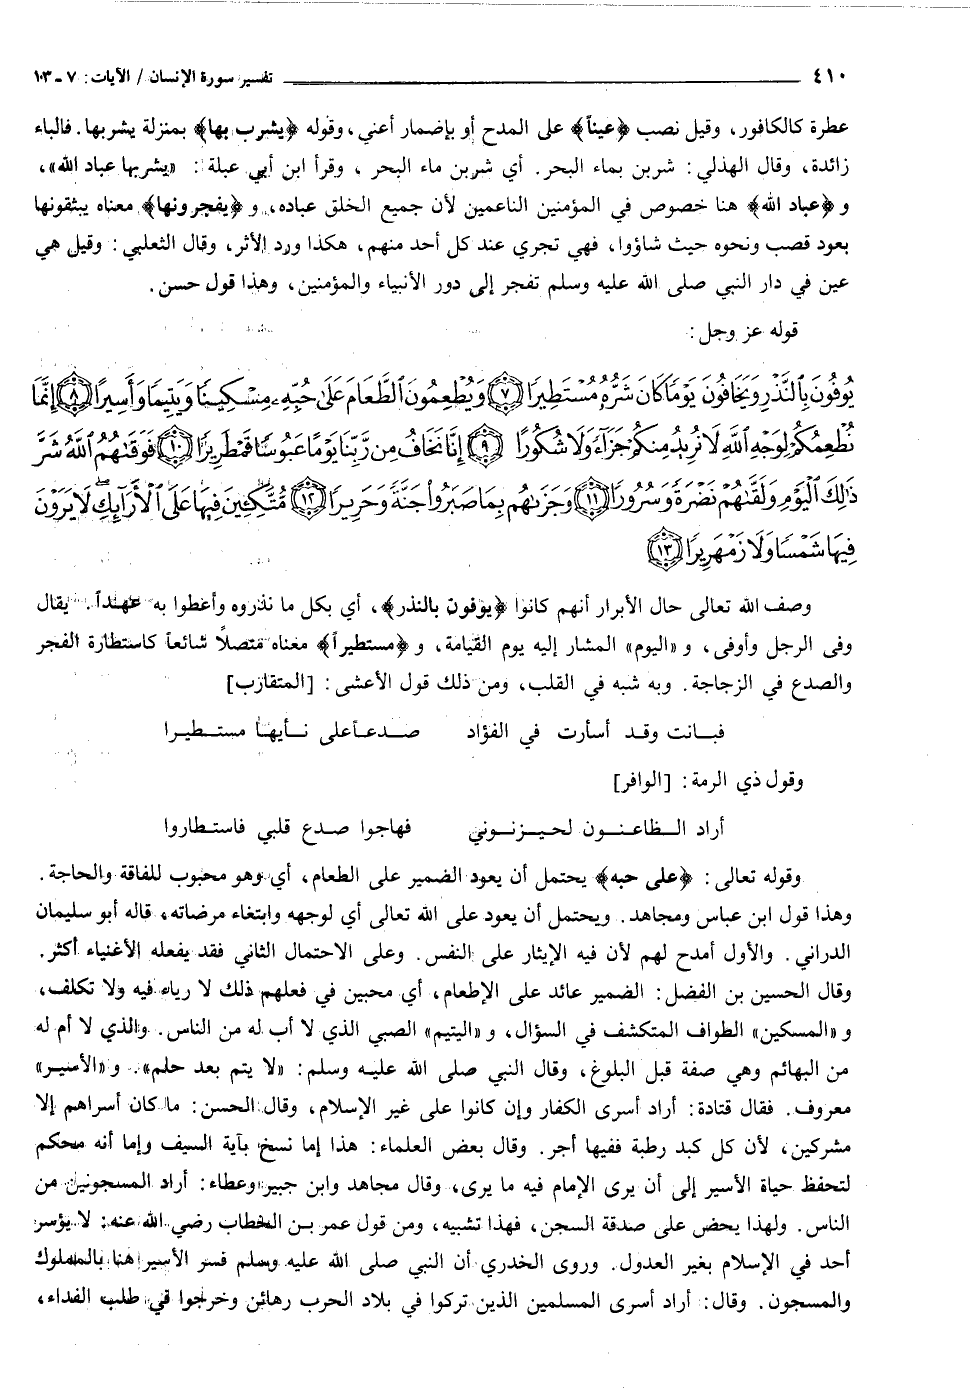 ٤١٠ تفسير سورة الإنسان / الآيات: ٧ ـ ١٠٣
عطرة كالكافور، وقيل نصب ﴿عيناً﴾ على المدح أو بإضمار أعني، وقوله ﴿يشرب بها﴾ بمنزلة يشربها. فالباء
زائدة، وقال الهذلي: شربن بماء البحر. أي شربن ماء البحر، وقرأ ابن أبي عبلة: «يشربها عباد الله»،
و ﴿عباد الله﴾ هنا خصوص في المؤمنين الناعمين لأن جميع الخلق عباده، و ﴿يفجرونها﴾ معناه يبثقونها
بعود قصب ونحوه حيث شاؤوا، فهي تجري عند كل أحد منهم، هكذا ورد الأثر، وقال الثعلبي: وقيل هي
عين في دار النبي صلى الله عليه وسلم تفجر إلى دور الأنبياء والمؤمنين، وهذا قول حسن.
قوله عز وجل:
يُوفُونَ بِالنَّذْرِ وَيَخَافُونَ يَوْمًا كَانَ شَرُّهُ مُسْتَطِيرًا ﴿٧﴾ وَيُطْعِمُونَ الطَّعَامَ عَلَىٰ حُبِّهِ مِسْكِينًا وَيَتِيمًا وَأَسِيرًا ﴿٨﴾ إِنَّمَا
نُطْعِمُكُمْ لِوَجْهِ اللَّهِ لَا نُرِيدُ مِنكُمْ جَزَاءً وَلَا شُكُورًا ﴿٩﴾ إِنَّا نَخَافُ مِن رَّبِّنَا يَوْمًا عَبُوسًا قَمْطَرِيرًا ﴿١٠﴾ فَوَقَاهُمُ اللَّهُ شَرَّ
ذَٰلِكَ الْيَوْمِ وَلَقَّاهُمْ نَضْرَةً وَسُرُورًا ﴿١١﴾ وَجَزَاهُم بِمَا صَبَرُوا جَنَّةً وَحَرِيرًا ﴿١٢﴾ مُّتَّكِئِينَ فِيهَا عَلَى الْأَرَائِكِ لَا يَرَوْنَ
فِيهَا شَمْسًا وَلَا زَمْهَرِيرًا ﴿١٣﴾
وصف الله تعالى حال الأبرار أنهم كانوا ﴿يوفون بالنذر﴾، أي بكل ما نذروه وأعطوا به عهداً. يقال
وفى الرجل وأوفى، و «اليوم» المشار إليه يوم القيامة، و ﴿مستطيراً﴾ معناه متصلاً شائعاً كاستطارة الفجر
والصدع في الزجاجة. وبه شبه في القلب، ومن ذلك قول الأعشى: [المتقارب]
فبانت وقد أسأرت في الفؤاد صدعاً على نأيها مستطيرا
وقول ذي الرمة: [الوافر]
أراد الظاعنون لحيزنوني فهاجوا صدع قلبي فاستطاروا
وقوله تعالى: ﴿على حبه﴾ يحتمل أن يعود الضمير على الطعام، أي وهو محبوب للفاقة والحاجة.
وهذا قول ابن عباس ومجاهد. ويحتمل أن يعود على الله تعالى أي لوجهه وابتغاء مرضاته، قاله أبو سليمان
الدراني. والأول أمدح لهم لأن فيه الإيثار على النفس. وعلى الاحتمال الثاني فقد يفعله الأغنياء أكثر.
وقال الحسين بن الفضل: الضمير عائد على الإطعام، أي محبين في فعلهم ذلك لا رياء فيه ولا تكلف،
و «المسكين» الطواف المتكشف في السؤال، و «اليتيم» الصبي الذي لا أب له من الناس. والذي لا أم له
من البهائم وهي صفة قبل البلوغ، وقال النبي صلى الله عليه وسلم: «لا يتم بعد حلم». و «الأسير»
معروف. فقال قتادة: أراد أسرى الكفار وإن كانوا على غير الإسلام، وقال الحسن: ما كان أسراهم إلا
مشركين، لأن كل كبد رطبة ففيها أجر. وقال بعض العلماء: هذا إما نسخ بآية السيف وإما أنه محكم
لتحفظ حياة الأسير إلى أن يرى الإمام فيه ما يرى، وقال مجاهد وابن جبير وعطاء: أراد المسجونين من
الناس. ولهذا يحض على صدقة السجن، فهذا تشبيه، ومن قول عمر بن الخطاب رضي الله عنه: لا يؤسر
أحد في الإسلام بغير العدول. وروى الخدري أن النبي صلى الله عليه وسلم فسر الأسير هنا بالمملوك
والمسجون. وقال: أراد أسرى المسلمين الذين تركوا في بلاد الحرب رهائن وخرجوا في طلب الفداء،